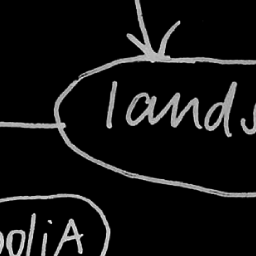 lands
ooliA